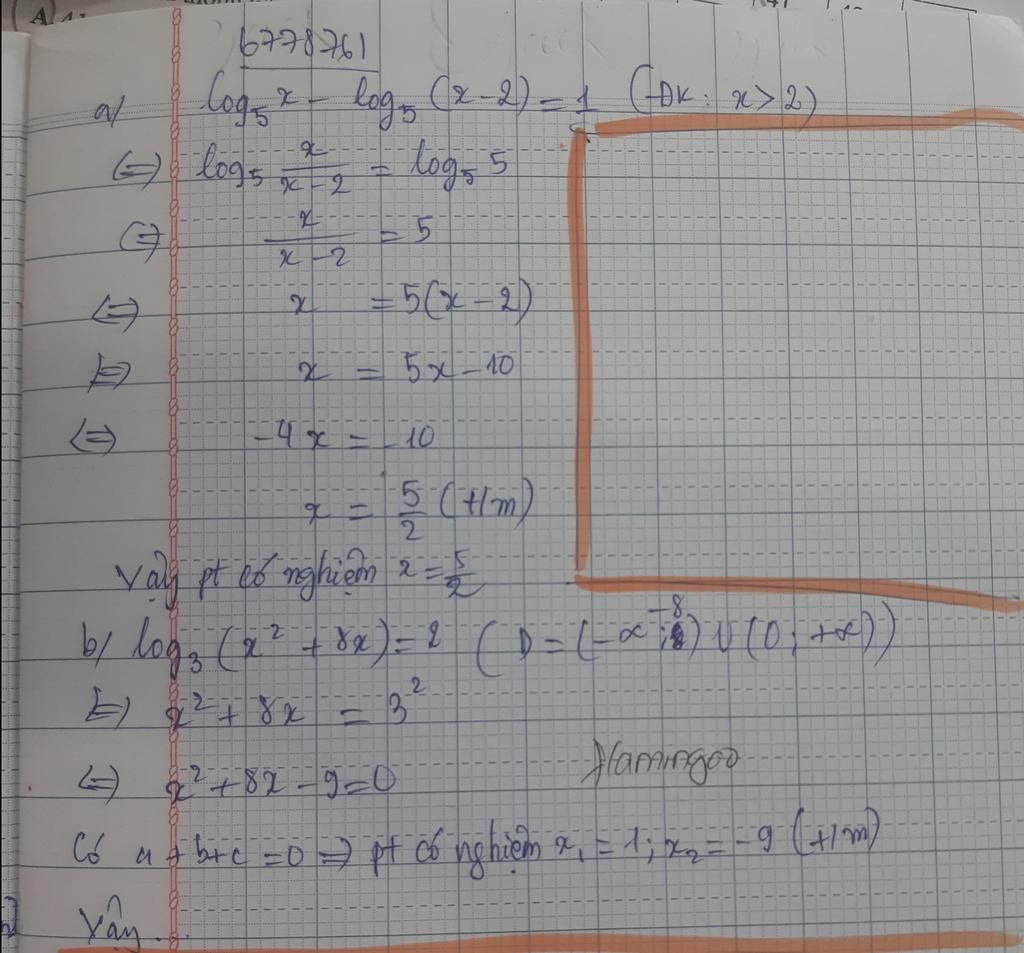 6778761
a/ log₅x - log₅(x-2) = 1 (ĐK: x>2)
(=) log₅ x/(x-2) = log₅ 5
(=) x/(x-2) = 5
(=) x = 5(x-2)
(=) x = 5x-10
(=) -4x = -10
x = 5/2 (t/m)
Vậy pt có nghiệm x = 5/2
b/ log₃(x² + 8x) = 2 (D = (-∞; -8) ∪ (0; +∞))
(=) x² + 8x = 3²
(=) x² + 8x - 9 = 0
Flamingoo
Có a+b+c = 0 => pt có nghiệm x₁ = 1; x₂ = -9 (t/m)
Vậy...